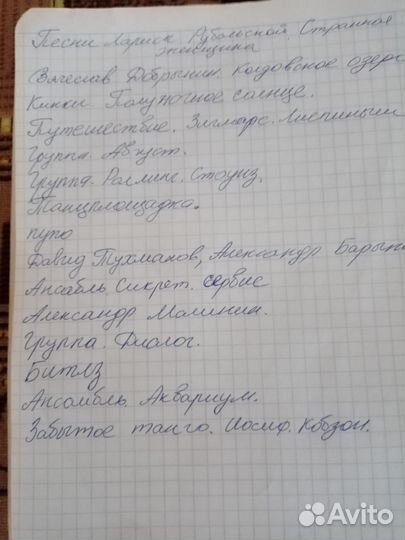 Песни Ларисы Рубальской, Странная
женщина
Вячеслав Добрынин. Колдовское озеро
Кинкс. Полуночное солнце.
Путешествие. Зигмарс. Лиепиньш
Группа. Август.
Группа. Роллинг. Стоунз.
Танцплощадка.
пупо
Давид Тухманов, Александр Барык
Ансабль. Сикрет. сервис
Александр Малинин.
Группа. Диолог.
Битлз
Ансамбль. Аквариум.
Забытое танго. Иосиф. Кобзон.
Avito